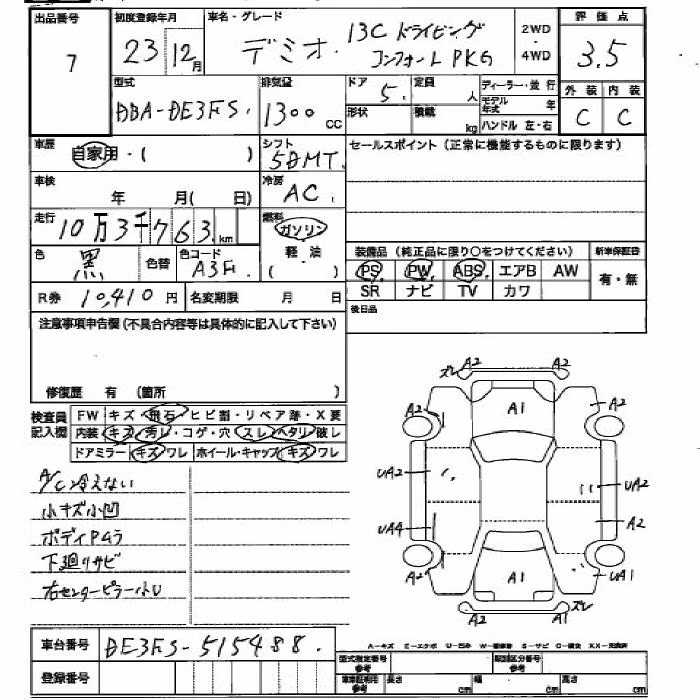 出品番号 初度登録年月 車名・グレード 2WD・4WD 評価点
7 23 12月 デミオ 13C ドライビング コンフォートPKG 3.5
型式 排気量 ドア 定員 ディーラー・並行 外装 内装
DBA-DE3FS 1300 CC 5 人 モデル年式 年 C C
形状 積載 kg ハンドル 左・右
車歴 自家用・( ) シフト 5DMT セールスポイント(正常に機能するものに限ります)
車検 年 月( 日) 冷房 AC
走行 10万3千763 km 燃料 ガソリン 軽油 ( )
色 黒 色替 色コード A3F
装備品(純正品に限り○をつけてください) 新車保証書
PS PW ABS エアB AW 有・無
SR ナビ TV カワ
R券 10,410円 名変期限 月 日 後日品
注意事項申告欄(不具合内容等は具体的に記入して下さい)
修復歴 有 (箇所 )
検査員記入欄 FW キズ・飛石・ヒビ割・リペア跡・X要
内装 キズ・汚レ・コゲ・穴・スレ・ヘタリ・破レ
ドアミラー キズ・ワレ ホイール・キャップ キズ・ワレ
A/C冷えない
小キズ小凹
ボディPムラ
下廻りサビ
右センターピラー小U
A2 A2
ズレ
A1
A2 A2
UA2 UA2
UA4 A2
A2 A1 UA1
A2 A2 ズレ
車台番号 DE3FS-515488
登録番号
A-キズ E-エクボ U-凹み S-サビ C-腐食 XX-交換済
型式指定番号 参考 類別区分番号 参考
車車証明用 参考 長さ cm 幅 cm 高さ cm